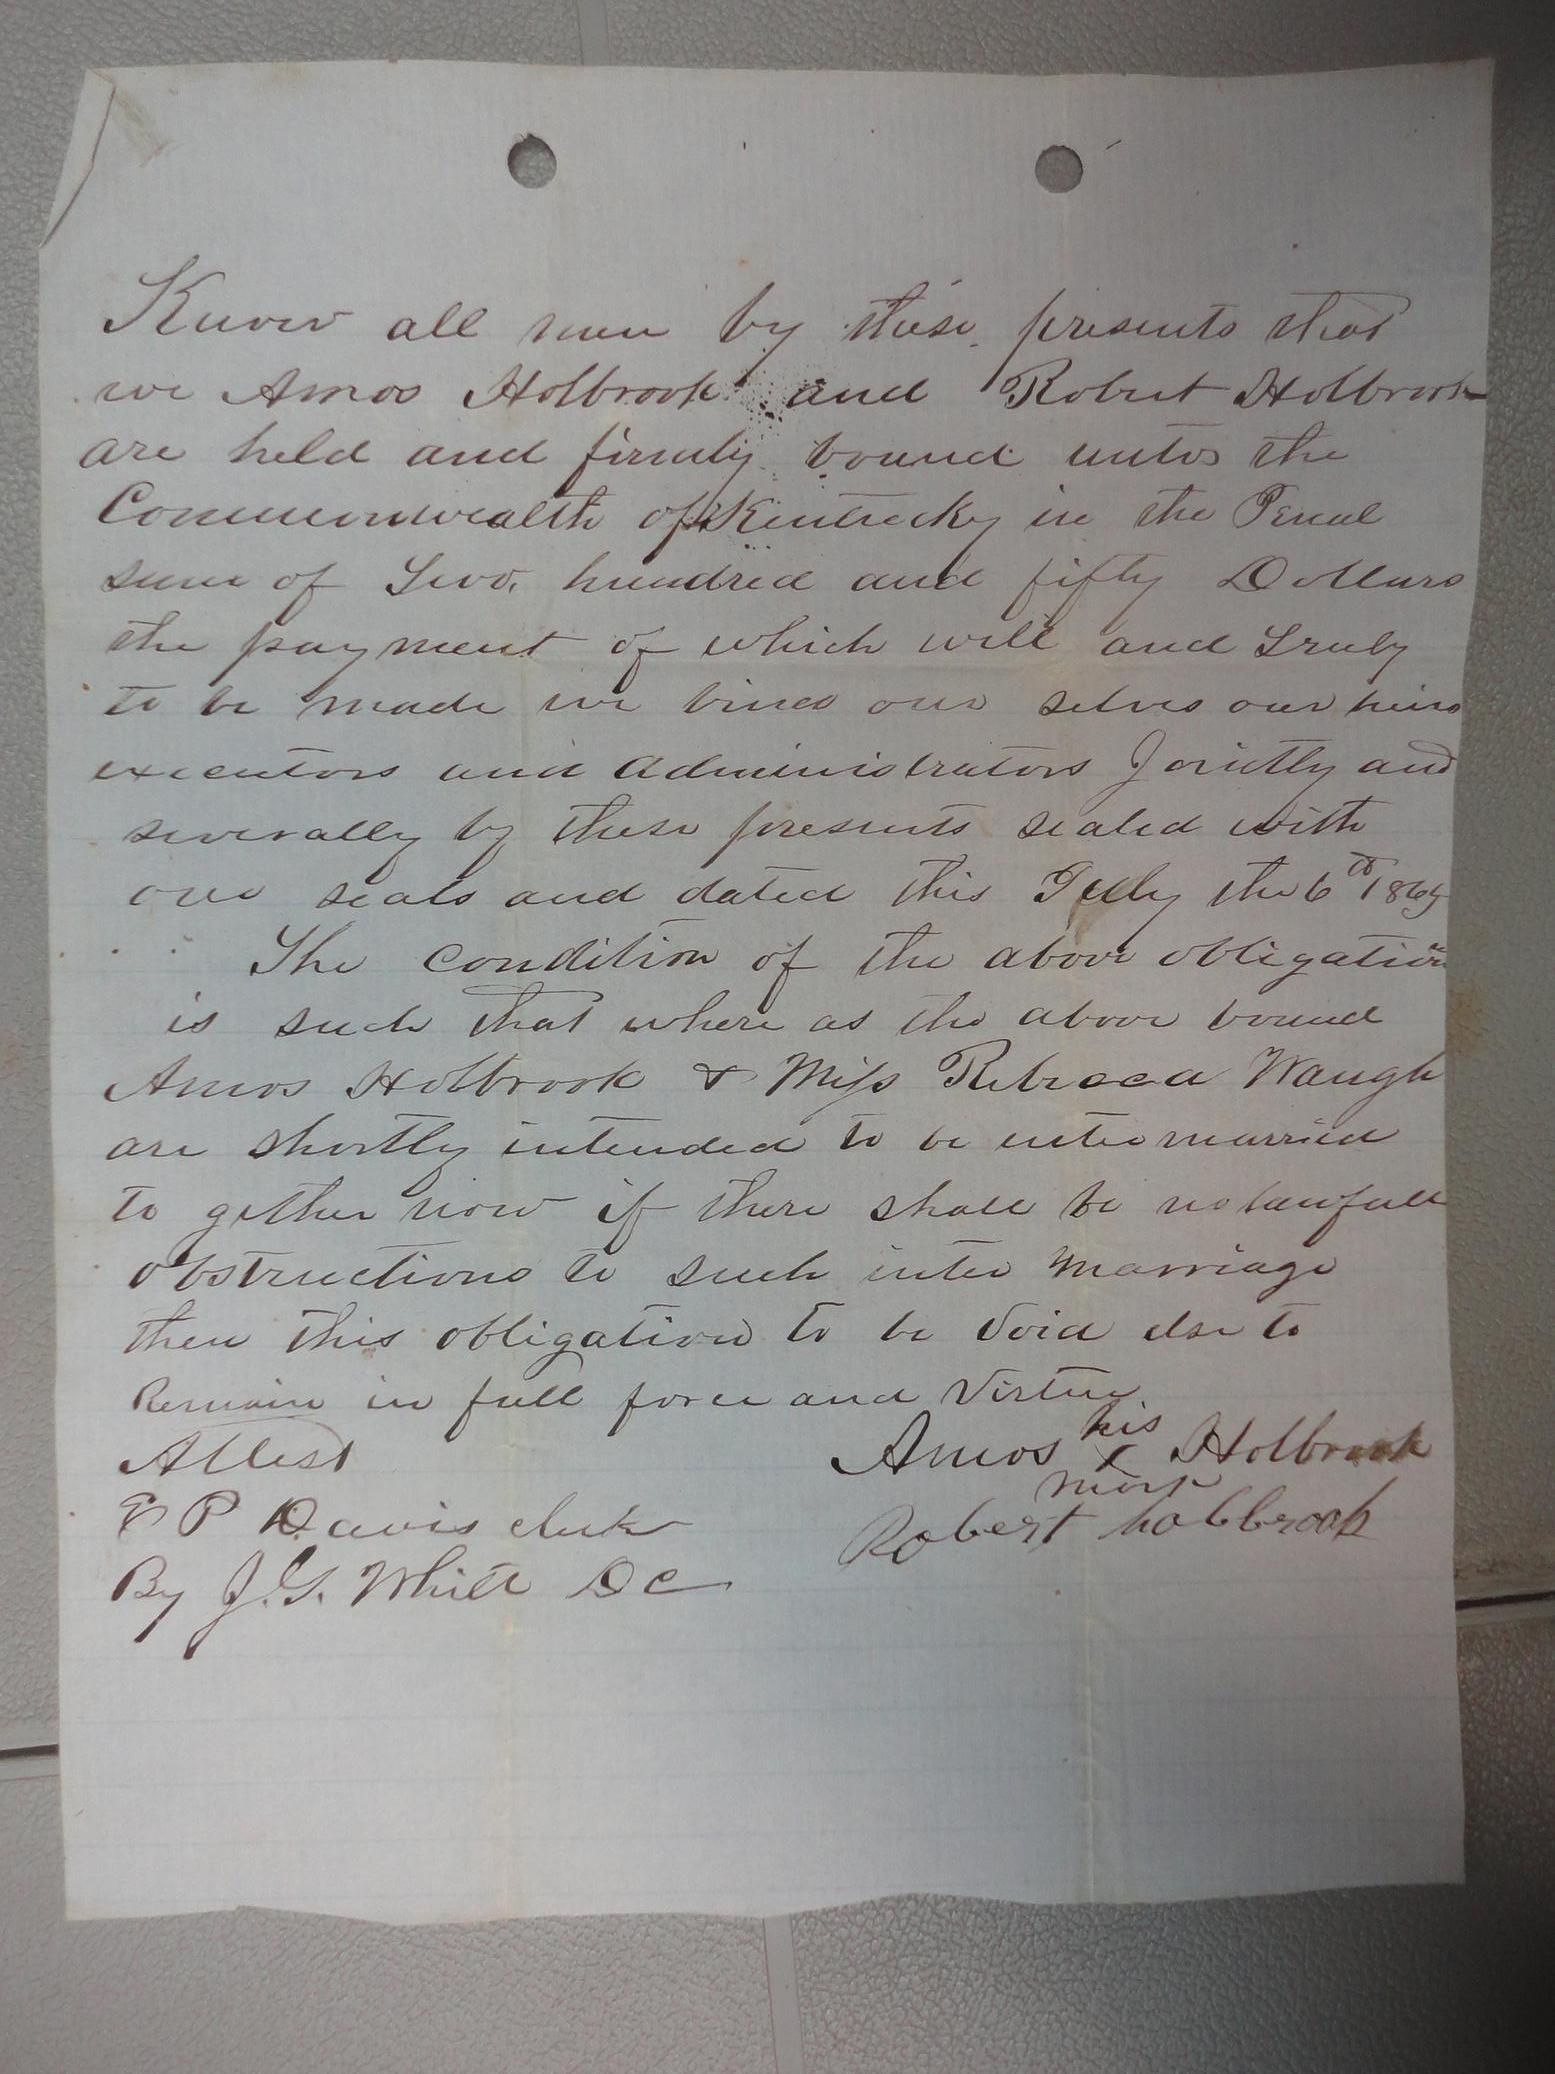 Know all men by these presents that
we Amos Holbrook and Robert Holbrook
are held and firmly bound unto the
Commonwealth of Kentucky in the Penal
sum of Two hundred and fifty Dollars
the payment of which will and Truly
to be made we bind our selves our heirs
executors and administrators Jointly and
severally by these presents sealed with
our seals and dated this July the 6th
The condition of the above obligation
is such that where as the above bound
Amos Holbrook & Miss Rebecca Waugh
are shortly intended to be inter married
to gether now if there shall be no lawfull
obstructions to such inter marriage
then this obligation to be void else to
Remain in full force and virtue
Attest
Amos his x mark Holbrook
E P Davis clerk
Robert holbrook
By J. G. Whitt DC